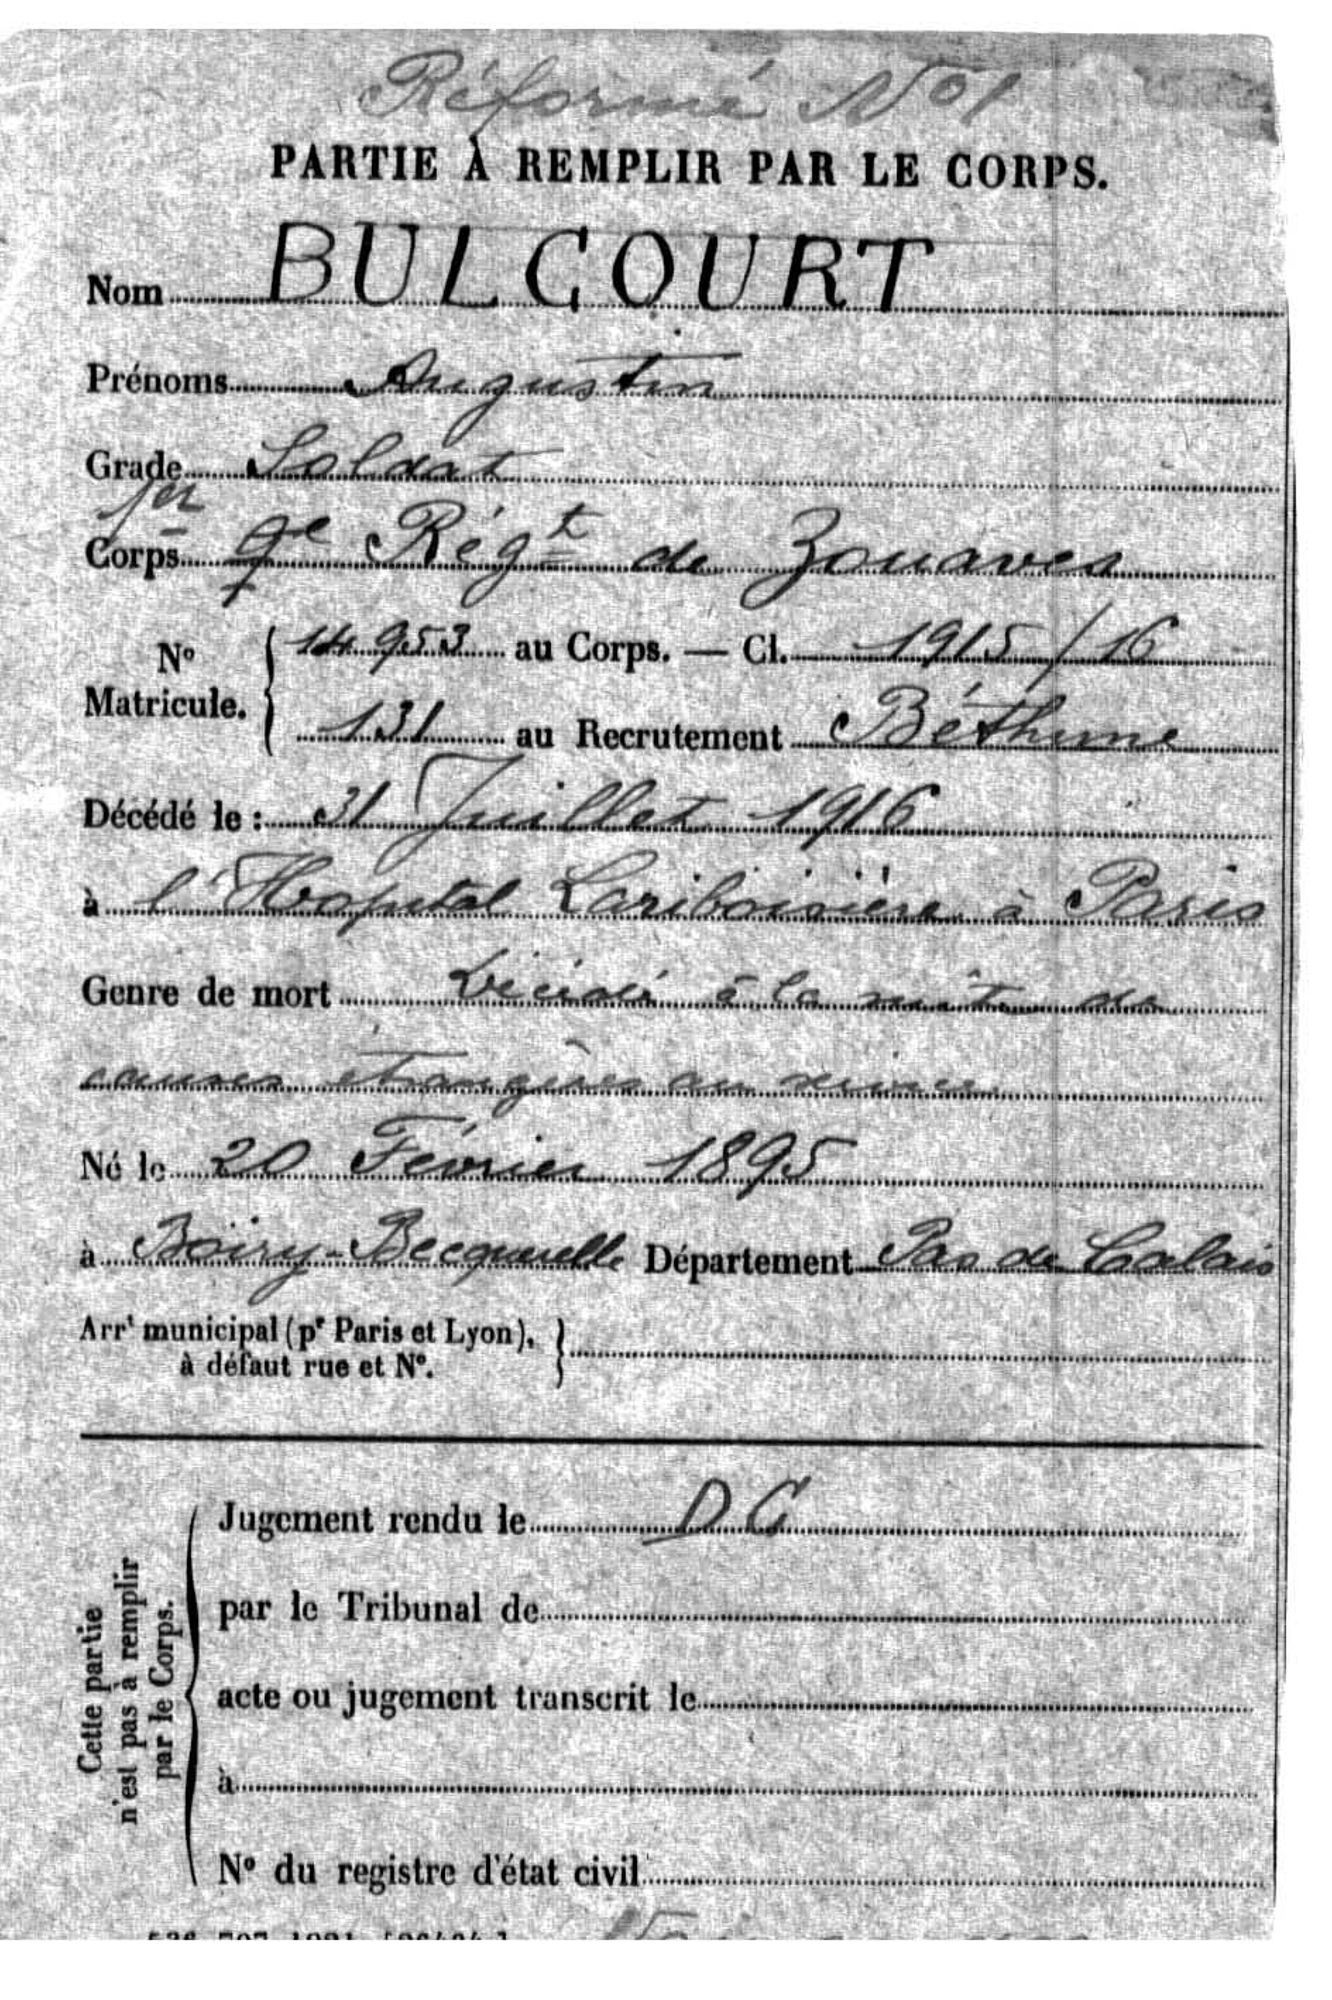 Réformé No 1
PARTIE À REMPLIR PAR LE CORPS.
Nom BULCOURT
Prénoms Augustin
Grade Soldat
1er
Corps 9e Régt de Zouaves
No Matricule. { 14953 au Corps. — Cl. 1915/16
131 au Recrutement Béthune
Décédé le : 31 Juillet 1916
à l'Hopital Lariboisière à Paris
Genre de mort Décédé à la suite de
causes étrangères au service
Né le 20 Février 1895
à Boiry-Becquerelle Département Pas de Calais
Arrt municipal (pr Paris et Lyon), }
à défaut rue et No.
Cette partie
n'est pas à remplir
par le Corps.
Jugement rendu le DC
par le Tribunal de
acte ou jugement transcrit le
à
No du registre d'état civil